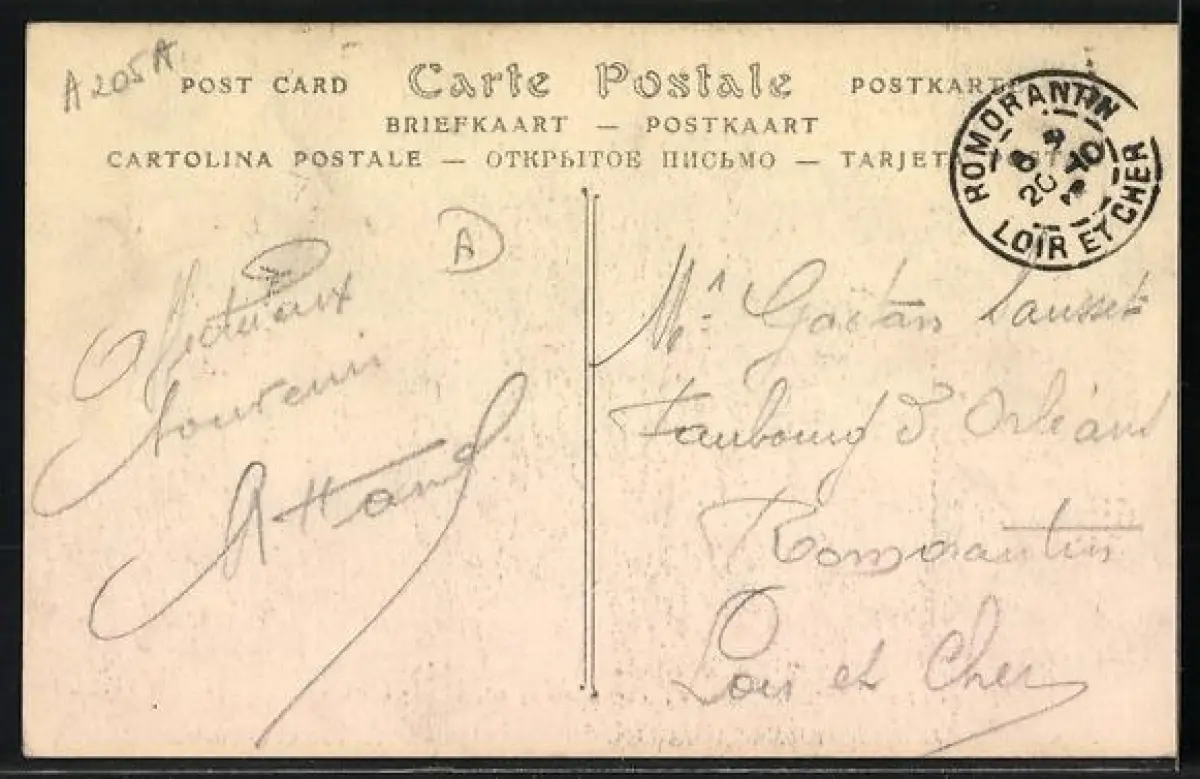 A 205 A
POST CARD Carte Postale POSTKARTE
BRIEFKAART — POSTKAART
CARTOLINA POSTALE — ОТКРЫТОЕ ПИСЬМО — TARJETA POSTAL
ROMORANTIN
LOIR ET CHER
A
Affectueux
souvenir
Mr Gaëtan
Faubourg d'Orléans
Romorantin
Loir et Cher